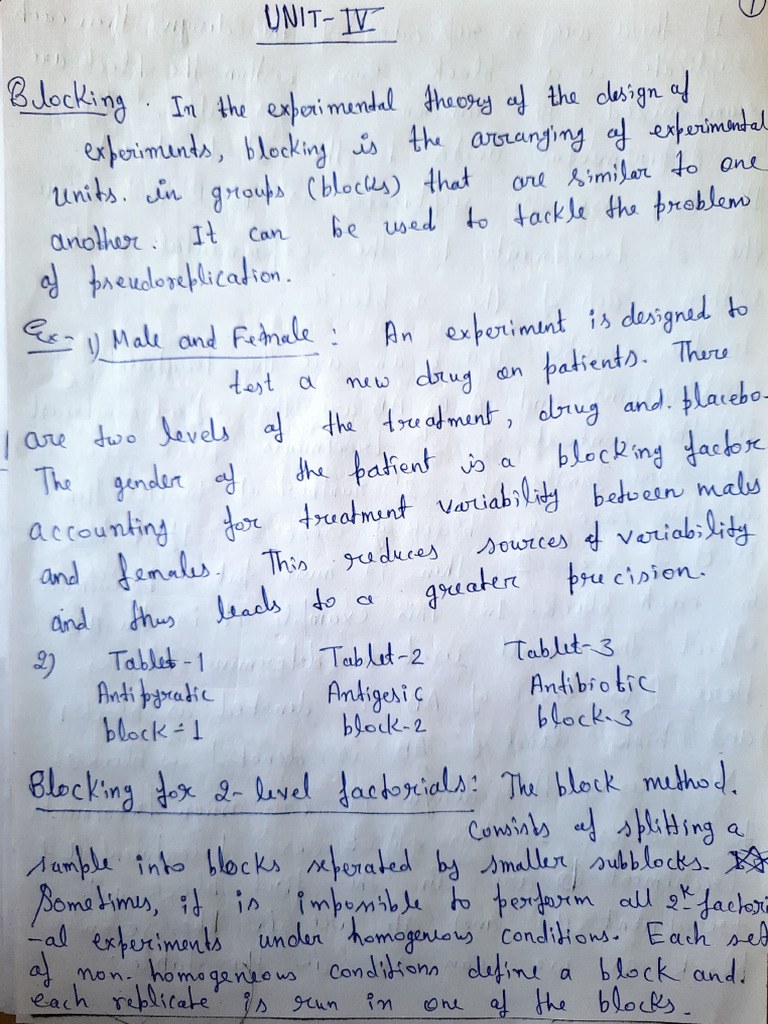 1
UNIT-IV
Blocking. In the experimental theory of the design of
experiments, blocking is the arranging of experimental
units. in groups (blocks) that are similar to one
another. It can be used to tackle the problem
of pseudoreplication.
Ex- 1) Male and Female : An experiment is designed to
test a new drug on patients. There
are two levels of the treatment, drug and placebo.
The gender of the patient is a blocking factor
accounting for treatment variability between males
and females. This reduces sources of variability
and thus leads to a greater precision.
2) Tablet-1 Tablet-2 Tablet-3
Antipyratic Antigesic Antibiotic
block-1 block-2 block-3
Blocking for 2-level factorials: The block method.
Consists of splitting a
sample into blocks seperated by smaller subblocks.
Sometimes, it is impossible to perform all 2^k factori
-al experiments under homogenious conditions. Each set
of non-homogineous conditions define a block and.
each replicate is run in one of the blocks.